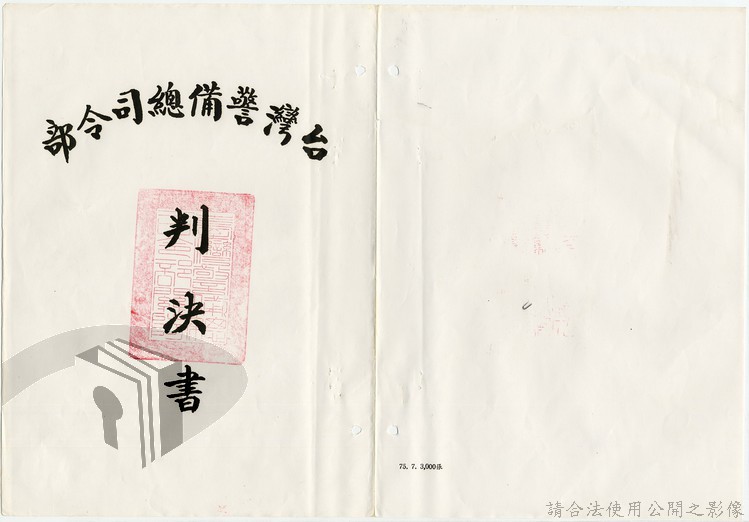 台灣警備總司令部
判決書
75. 7. 3,000張
請合法使用公開之影像